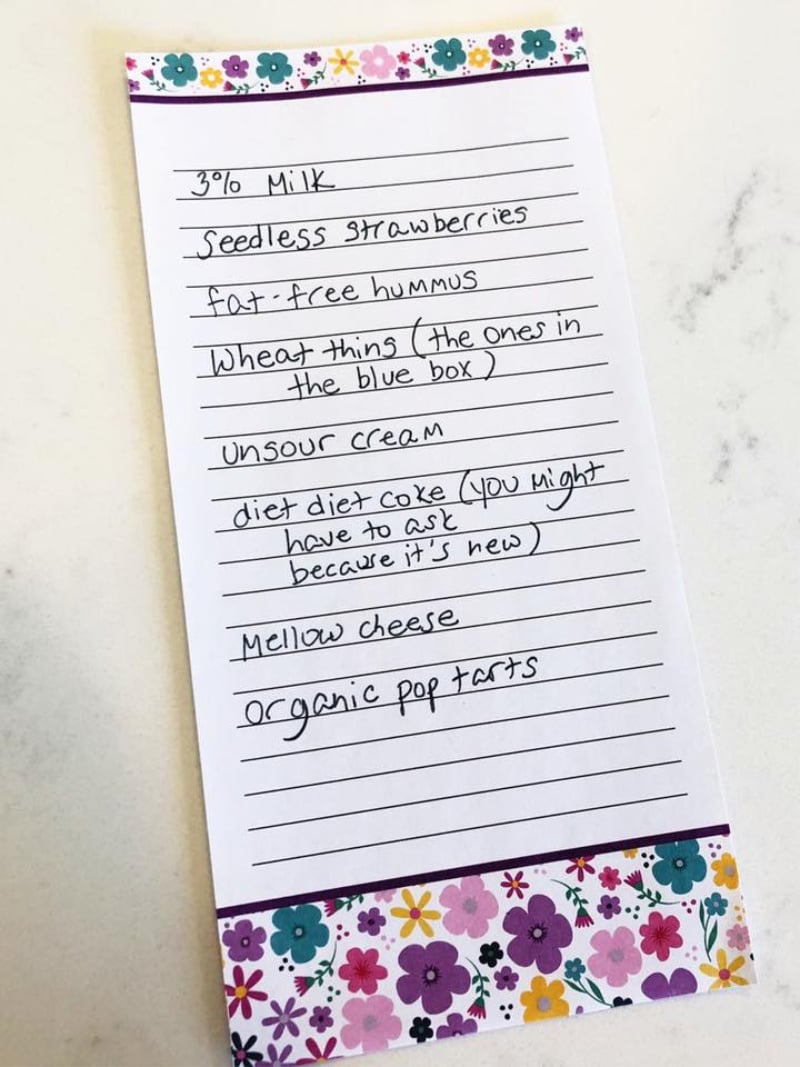 3% Milk
Seedless strawberries
fat-free hummus
Wheat thing (the ones in
the blue box)
unsour cream
diet diet coke (you might
have to ask
because it's new)
Mellow cheese
organic pop tarts